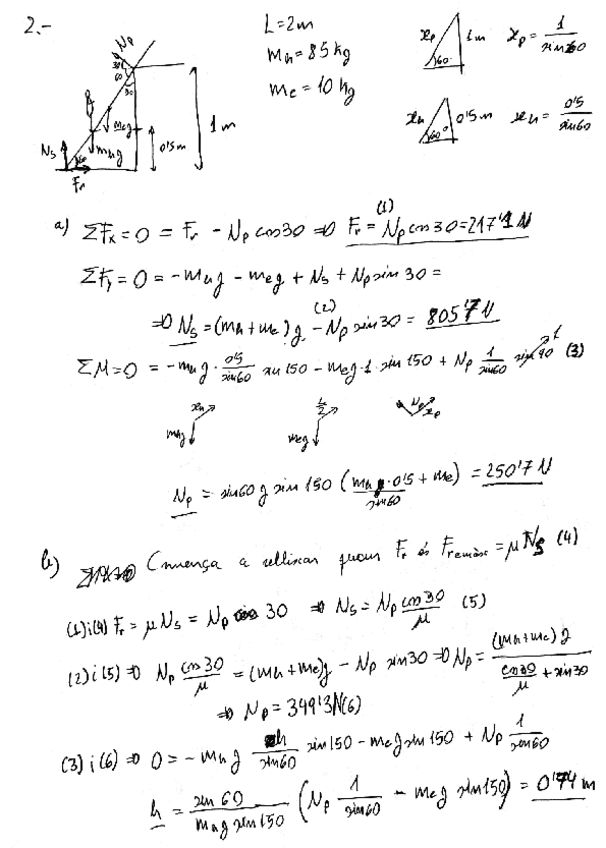 2.-
L=2m
m_h = 85 kg
m_e = 10 kg
x_p 1m 60° x_p = 1/sin60
x_h 0'5m 60° x_h = 0'5/sin60
N_p
30
60
30
m_e g
m_h g
N_s
60
F_r
0'5m
1m
a) ΣF_x = 0 = F_r - N_p cos30 ⇒ F_r =(1) N_p cos30 = 217'1 N
ΣF_y = 0 = -m_h g - m_e g + N_s + N_p sin 30 =
⇒ N_s = (m_h + m_e) g (2) - N_p sin30 = 805'7 N
ΣM=0 = -m_h g · 0'5/sin60 sin 150 - m_e g · 1 · sin 150 + N_p 1/sin60 sin 90 1 (3)
x_h m_h g L/2 m_e g N_p x_p
N_p = sin60 g sin 150 (m_h · 0'5/sin60 + m_e) = 250'7 N
b) Comença a relliscar quan F_r és F_r e màx = μ N_s (4)
(1) i (4) F_r = μ N_s = N_p cos 30 ⇒ N_s = N_p cos30/μ (5)
(2) i (5) ⇒ N_p cos30/μ = (m_h + m_e) g - N_p sin30 ⇒ N_p = (m_h + m_e) g / (cos30/μ + sin30)
⇒ N_p = 349'3N (6)
(3) i (6) ⇒ 0 = -m_h g h/sin60 sin150 - m_e g sin150 + N_p 1/sin60
h = sin 60/(m_h g sin150) (N_p 1/sin60 - m_e g sin150) = 0'74 m